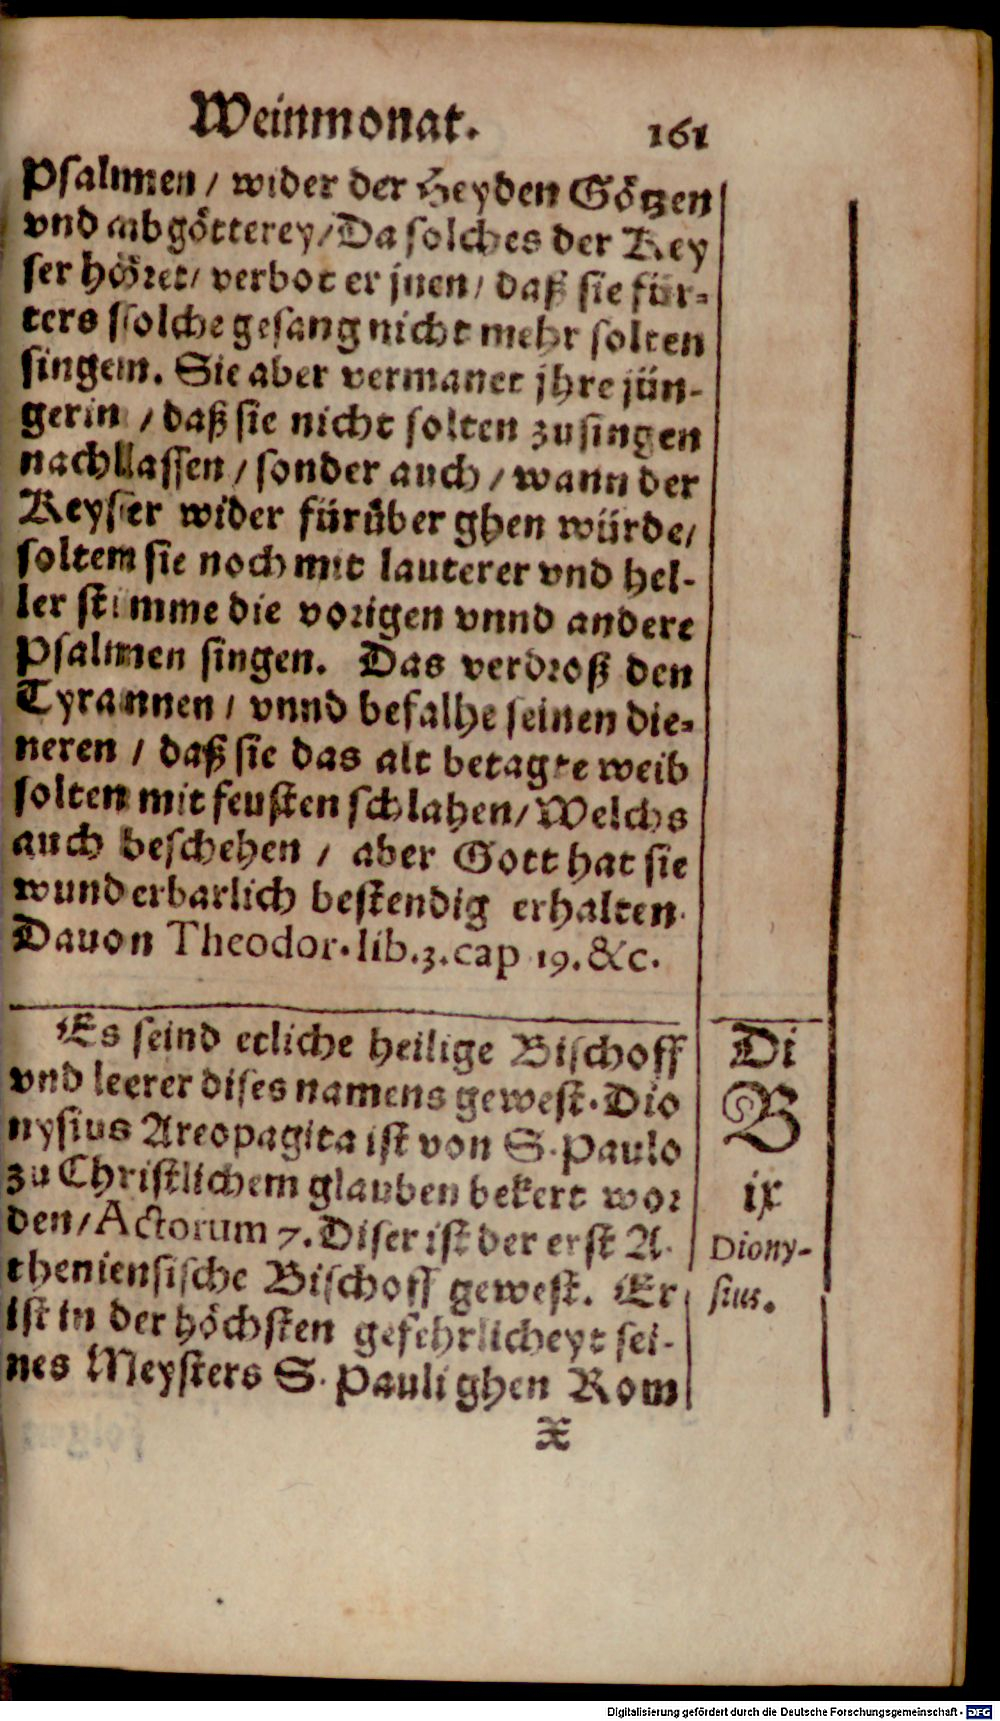 Weinmonat. 161
Psalmen / wider der Heyden Götzen
vnd abgötterey / Da solches der Key
ser höret / verbot er jnen / daß sie für-
ters solche gesang nicht mehr solten
singen. Sie aber vermanet jhre jün-
gerin / daß sie nicht solten zusingen
nachlassen / sonder auch / wann der
Keyser wider fürüber ghen würde /
solten sie noch mit lauterer vnd hel-
ler stimme die vorigen vnnd andere
Psalmen singen. Das verdroß den
Tyrannen / vnnd befalhe seinen die-
neren / daß sie das alt betagte weib
solten mit feusten schlahen / Welchs
auch beschehen / aber Gott hat sie
wunderbarlich bestendig erhalten.
Dauon Theodor. lib. 3. cap 19. &c.
Es seind etliche heilige Bischoff
vnd leerer dises namens gewest. Dio
nysius Areopagita ist von S. Paulo
zu Christlichem glauben bekert wor
den / Actorum 7. Diser ist der erst A-
theniensische Bischoff gewest. Er
ist in der höchsten gefehrlicheyt sei-
nes Meysters S. Pauli ghen Rom
X
Di
B
ix
Diony-
sius.
Digitalisierung gefördert durch die Deutsche Forschungsgemeinschaft - DFG